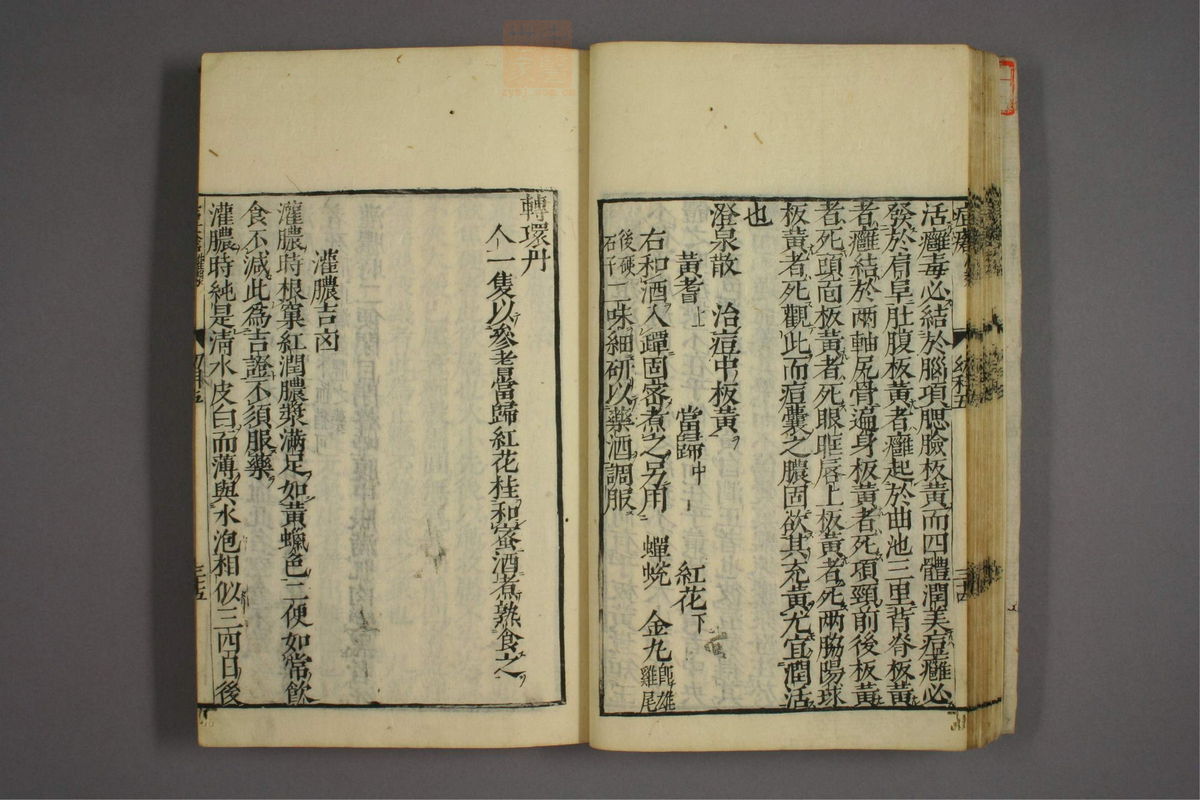 活癰毒必結於腦項腮臉板黃而四體潤美痘癰必
發於肩阜肚腹板黃者癰起於曲池三里背脊板黃
者癰結於兩軸尻骨遍身板黃者死項頸前後板黃
者死頭面板黃者死眼眶唇上板黃者死兩脇陽球
板黃者死觀此而痘囊之膿固欲其充黃尤宜潤活
也
澄泉散 治痘中板黃
黃耆上 當歸中 紅花下
右和酒入罈固密煮之另用 蟬蛻 金丸即雄雞尾
後硬石干二味細研以藥酒調服
轉環丹
人一隻以參耆當歸紅花桂和蜜酒煮熟食之
灌膿吉凶
灌膿時根窠紅潤膿漿滿足如黃蠟色二便如常飲
食不減此為吉證不須服藥
灌膿時純是清水皮白而薄與水泡相似三四日後